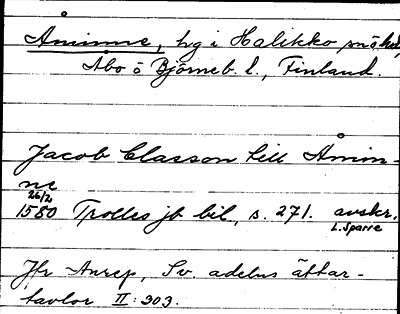 Åminne, hg i Halikko sn o hd,
Åbo o Björneb. l., Finland.
Jacob Classon till Åmin-
ne
26/2
1580 Trolles jb bil, s. 271. avskr.
L. Sparre
Jfr Anrep, Sv. adelns ättar-
tavlor II: 303.